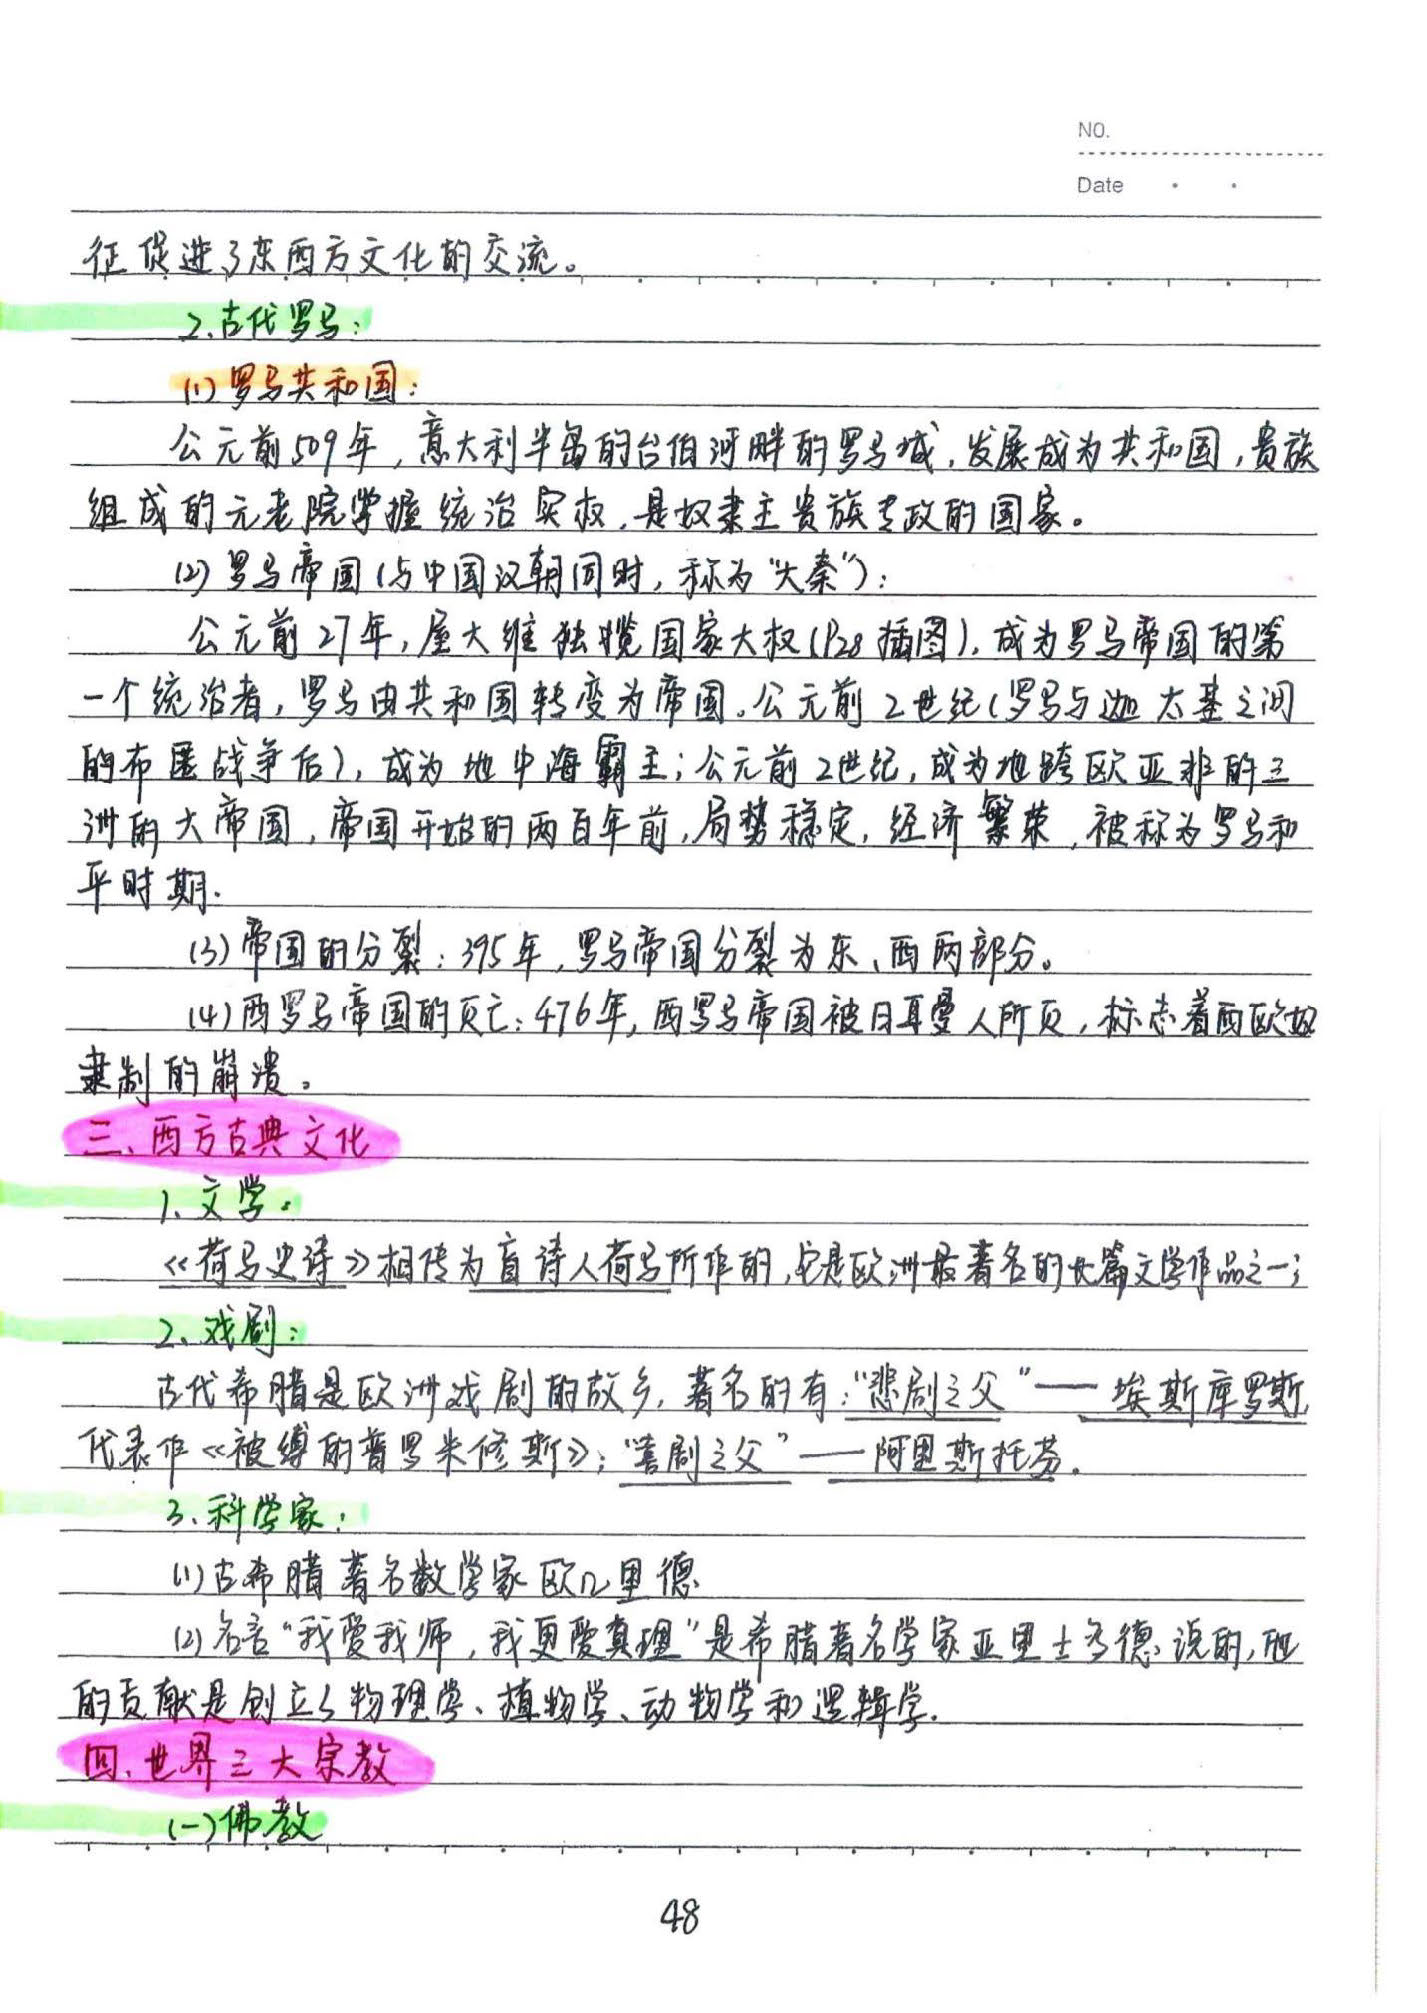 NO.
Date
征促进了东西方文化的交流。
2、古代罗马：
(1) 罗马共和国：
公元前509年，意大利半岛的台伯河畔的罗马城，发展成为共和国，贵族
组成的元老院掌握统治实权，是奴隶主贵族专政的国家。
(2) 罗马帝国(与中国汉朝同时，称为“大秦”)：
公元前27年，屋大维独揽国家大权(P28插图)，成为罗马帝国的第
一个统治者，罗马由共和国转变为帝国。公元前2世纪(罗马与迦太基之间
的布匿战争后)，成为地中海霸主；公元前2世纪，成为地跨欧亚非的三
洲的大帝国，帝国开始的两百年前，局势稳定，经济繁荣，被称为罗马和
平时期．
(3) 帝国的分裂：395年，罗马帝国分裂为东、西两部分。
(4) 西罗马帝国的灭亡：476年，西罗马帝国被日耳曼人所灭，标志着西欧奴
隶制的崩溃。
三、西方古典文化
1、文学：
《荷马史诗》相传为盲诗人荷马所作的，它是欧洲最著名的长篇文学作品之一；
2、戏剧：
古代希腊是欧洲戏剧的故乡，著名的有：“悲剧之父”——埃斯库罗斯
代表作《被缚的普罗米修斯》；“喜剧之父”——阿里斯托芬．
3、科学家：
(1) 古希腊著名数学家欧几里德
(2) 名言“我爱我师，我更爱真理”是希腊著名学家亚里士多德说的，他
的贡献是创立了物理学、植物学、动物学和逻辑学．
四、世界三大宗教
(一) 佛教
48